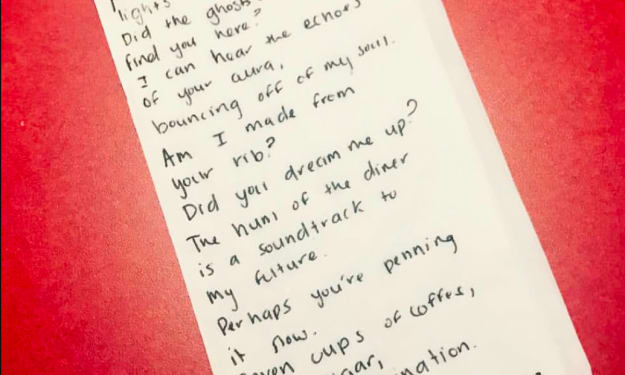 lights
Did the ghosts
find you here?
I can hear the echoes
of your aura,
bouncing off of my soul.
Am I made from
your rib?
Did you dream me up?
The hum of the diner
is a soundtrack to
my future.
Perhaps you're penning
it now.
cups of coffee,